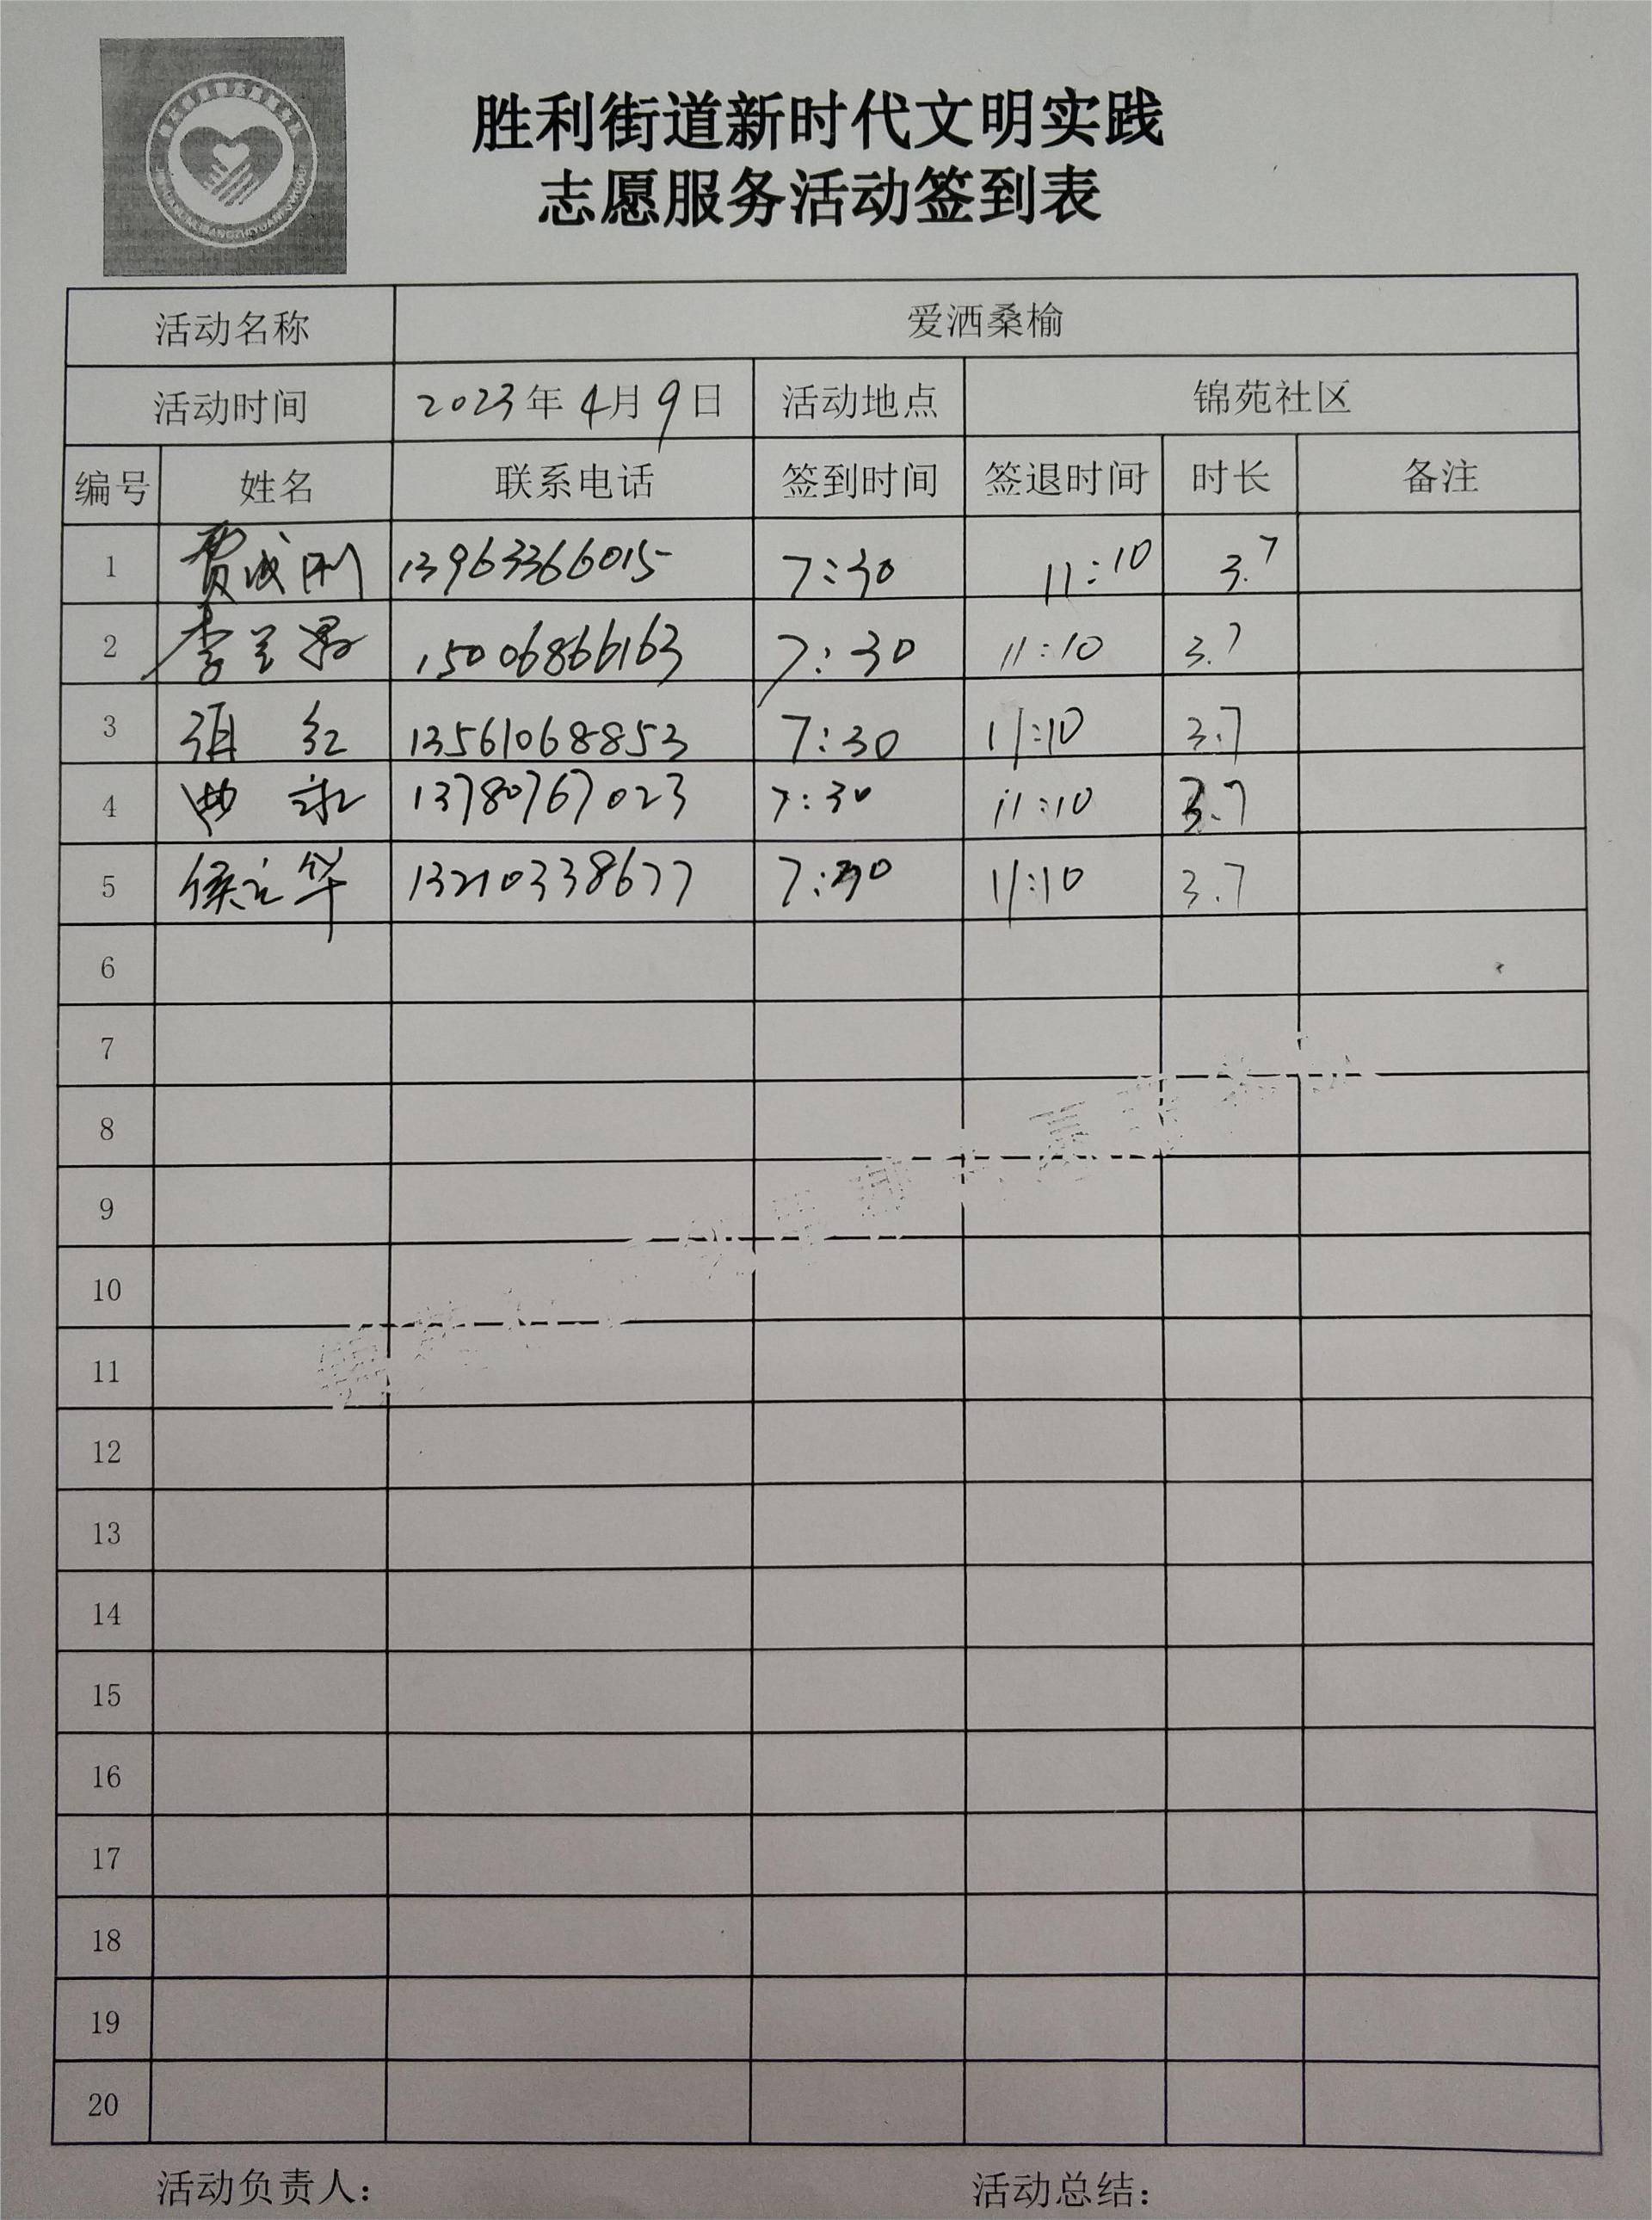 胜利街道新时代文明实践
志愿服务活动签到表
活动名称 爱洒桑榆
活动时间 2023年4月9日 活动地点 锦苑社区
编号 姓名 联系电话 签到时间 签退时间 时长 备注
1 贾成刚 13963366015 7:30 11:10 3.7
2 李兰 15006866163 7:30 11:10 3.7
3 红 13561068853 7:30 11:10 3.7
4 曲 13780767023 7:30 11:10 3.7
5 侯立华 13210338677 7:30 11:10 3.7
6
7
8
9
10
11
12
13
14
15
16
17
18
19
20
活动负责人: 活动总结: